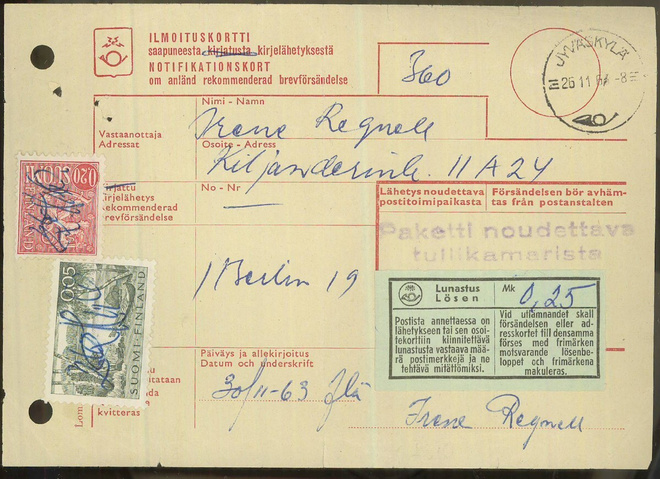 ILMOITUSKORTTI
saapuneesta kirjatusta kirjelähetyksestä
NOTIFIKATIONSKORT
om anländ rekommenderad brevförsändelse
360
JYVÄSKYLÄ
26 11 63 -8
Nimi - Namn
Vastaanottaja
Adressat
Irene Regnell
Osoite - Adress
11 A 24
Kirjattu
kirjelähetys
Rekommenderad
brevförsändelse
No - Nr
—
Lähetys noudettava
postitoimipaikasta
Försändelsen bör avhäm-
tas från postanstalten
Paketti noudettava
tullikamarista
0,20
SUOMI
0,05
SUOMI-FINLAND
1 Berlin 19
Lunastus
Lösen
Mk
0,25
Postista annettaessa on
lähetykseen tai sen osoi-
tekorttiin kiinnitettävä
lunastusta vastaava mää-
rä postimerkkejä ja ne
tehtävä mitättömiksi.
Vid utlämnandet skall
försändelsen eller ad-
resskortet till densamma
förses med frimärken
motsvarande lösenbe-
loppet och frimärkena
makuleras.
Päiväys ja allekirjoitus
Datum och underskrift
kuitataan
kvitteras
Lom
30/11-63 Jlä
Irene Regnell